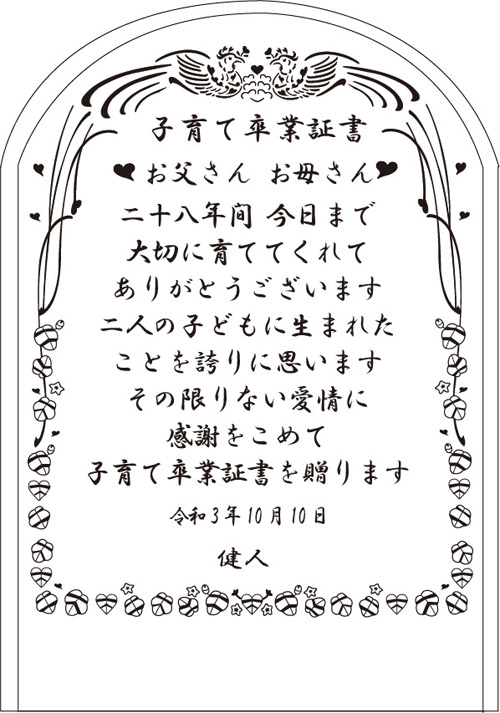 子育て卒業証書
お父さん お母さん
二十八年间 今日まで
大切に育ててくれて
ありがとうございます
二人の子どもに生まれた
ことを誇りに思います
その限りない愛情に
感謝をこめて
子育て卒業証書を贈ります
令和3年10月10日
健人